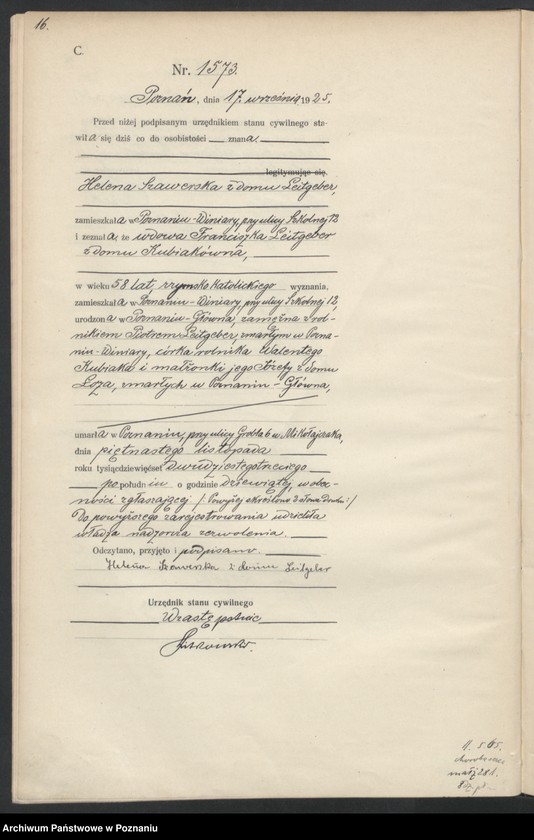 16.
C
Nr. 1573.
Poznań, dnia 17. września 1925.
Przed niżej podpisanym urzędnikiem stanu cywilnego sta-
wiła się dziś co do osobistości znana
legitymując się
Helena Szawerska z domu Leitgeber,
zamieszkała w Poznaniu-Winiary, przy ulicy Szkolnej 12
i zeznała, że wdowa Franciszka Leitgeber
z domu Kubiakówna,
w wieku 58 lat, rzymsko katolickiego wyznania,
zamieszkała w Poznaniu-Winiary, przy ulicy Szkolnej 12,
urodzona w Poznaniu-Główna, zamężna z rol-
nikiem Piotrem Leitgeber, zmarłym w Pozna-
niu-Winiary, córka rolnika Walentego
Kubiaka i małżonki jego Józefy z domu
Loza, zmarłych w Poznaniu-Główna,
umarła w Poznaniu, przy ulicy Grobla 6 u Mikołajczaka,
dnia piętnastego listopada
roku tysiącdziewięćset dwudziestegotrzeciego
po południu o godzinie dziewiątej, w obec-
ności zgłaszającej /: Powyżej skreślono 2 słowa druku :/
Do powyższego zarejestrowania udzieliła
władza nadzorcza zezwolenia.
Odczytano, przyjęto i podpisano.
Helena Szawerska z domu Leitgeber
Urzędnik stanu cywilnego
W zastępstwie
11. 5. 65.
małż 281.
Archiwum Państwowe w Poznaniu